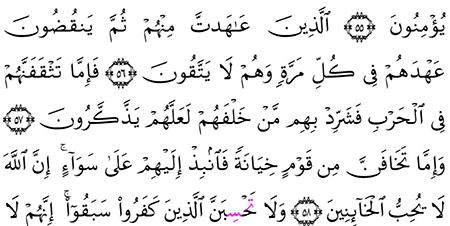 يُؤْمِنُونَ ٥٥ الَّذِينَ عَٰهَدتَّ مِنْهُمْ ثُمَّ يَنقُضُونَ
عَهْدَهُمْ فِى كُلِّ مَرَّةٍ وَهُمْ لَا يَتَّقُونَ ٥٦ فَإِمَّا تَثْقَفَنَّهُمْ
فِى الْحَرْبِ فَشَرِّدْ بِهِم مَّنْ خَلْفَهُمْ لَعَلَّهُمْ يَذَّكَّرُونَ ٥٧
وَإِمَّا تَخَافَنَّ مِن قَوْمٍ خِيَانَةً فَانۢبِذْ إِلَيْهِمْ عَلَىٰ سَوَآءٍ ۚ إِنَّ اللَّهَ
لَا يُحِبُّ الْخَآئِنِينَ ٥٨ وَلَا تَحْسِبَنَّ الَّذِينَ كَفَرُوا۟ سَبَقُوٓا۟ ۚ إِنَّهُمْ لَا